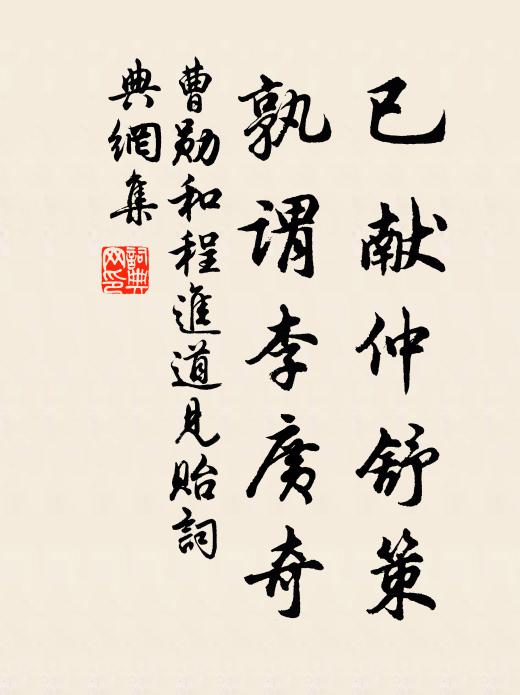 已献仲舒策
孰谓李广奇
曹勋和程進道見贻詞
典網集
詞典
网印